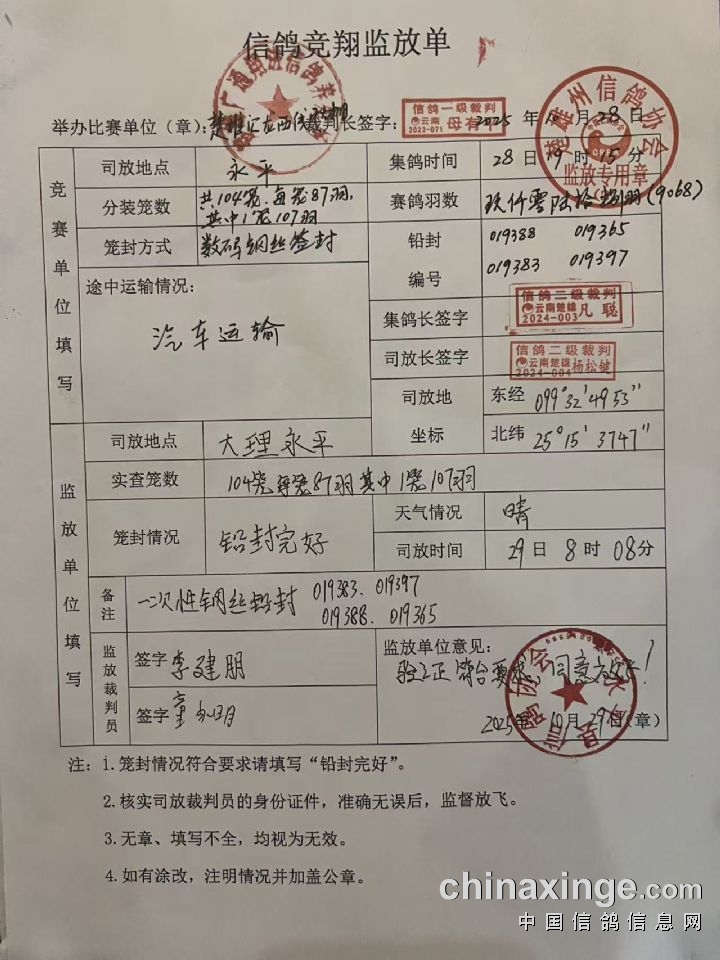 信鸽竞翔监放单
举办比赛单位（章）: 裁判长签字: 2025 年 10 月 28 日
信鸽一级裁判
云南 2023-071 母有
楚雄州信鸽协会
监放专用章
竞赛单位填写
司放地点 永平 集鸽时间 28 日 19 时 15 分
分装笼数 共104笼.每笼87羽, 其中1笼107羽 赛鸽羽数 玖仟零陆拾捌羽(9068)
笼封方式 数码钢丝签封 铅封编号 019388 019365
019383 019397
途中运输情况: 汽车运输
集鸽长签字 信鸽二级裁判 云南楚雄 2024-003 凡聪
司放长签字 信鸽二级裁判 云南楚雄 2024-004 杨松键
司放地坐标 东经 099°32'4953"
北纬 25°15'3747"
监放单位填写
司放地点 大理永平
实查笼数 104笼 每笼87羽 其中1笼107羽
笼封情况 铅封完好 天气情况 晴
司放时间 29 日 8 时 08 分
备注 一次性钢丝铅封 019383. 019397
019388. 019365
监放裁判员 签字 李建朋
签字
监放单位意见:
符合要求, 同意
2025年 10月 29日(章)
注: 1.笼封情况符合要求请填写“铅封完好”。
2.核实司放裁判员的身份证件，准确无误后，监督放飞。
3.无章、填写不全，均视为无效。
4.如有涂改，注明情况并加盖公章。
chinaxinge.com
中国信鸽信息网